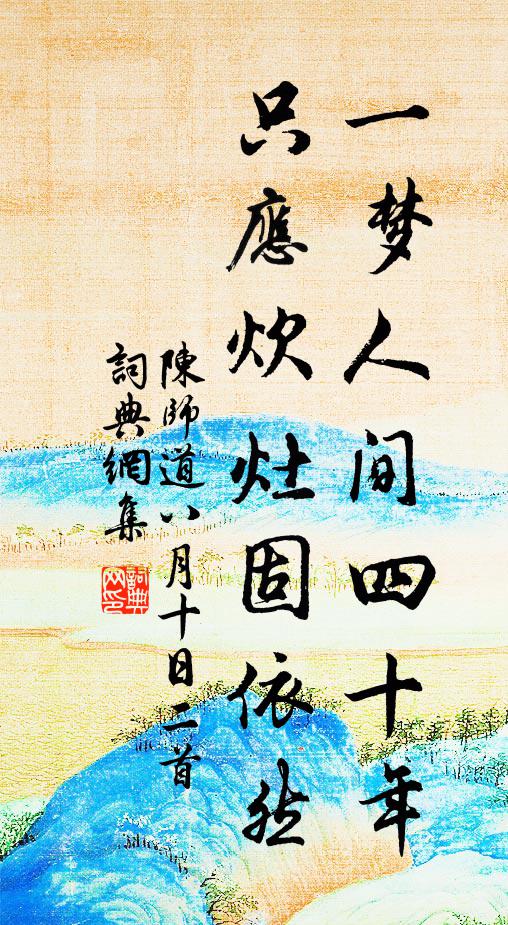 一梦人间四十年
只應炊灶固依然
陳師道八月十日二首
詞典網集
詞典
网印